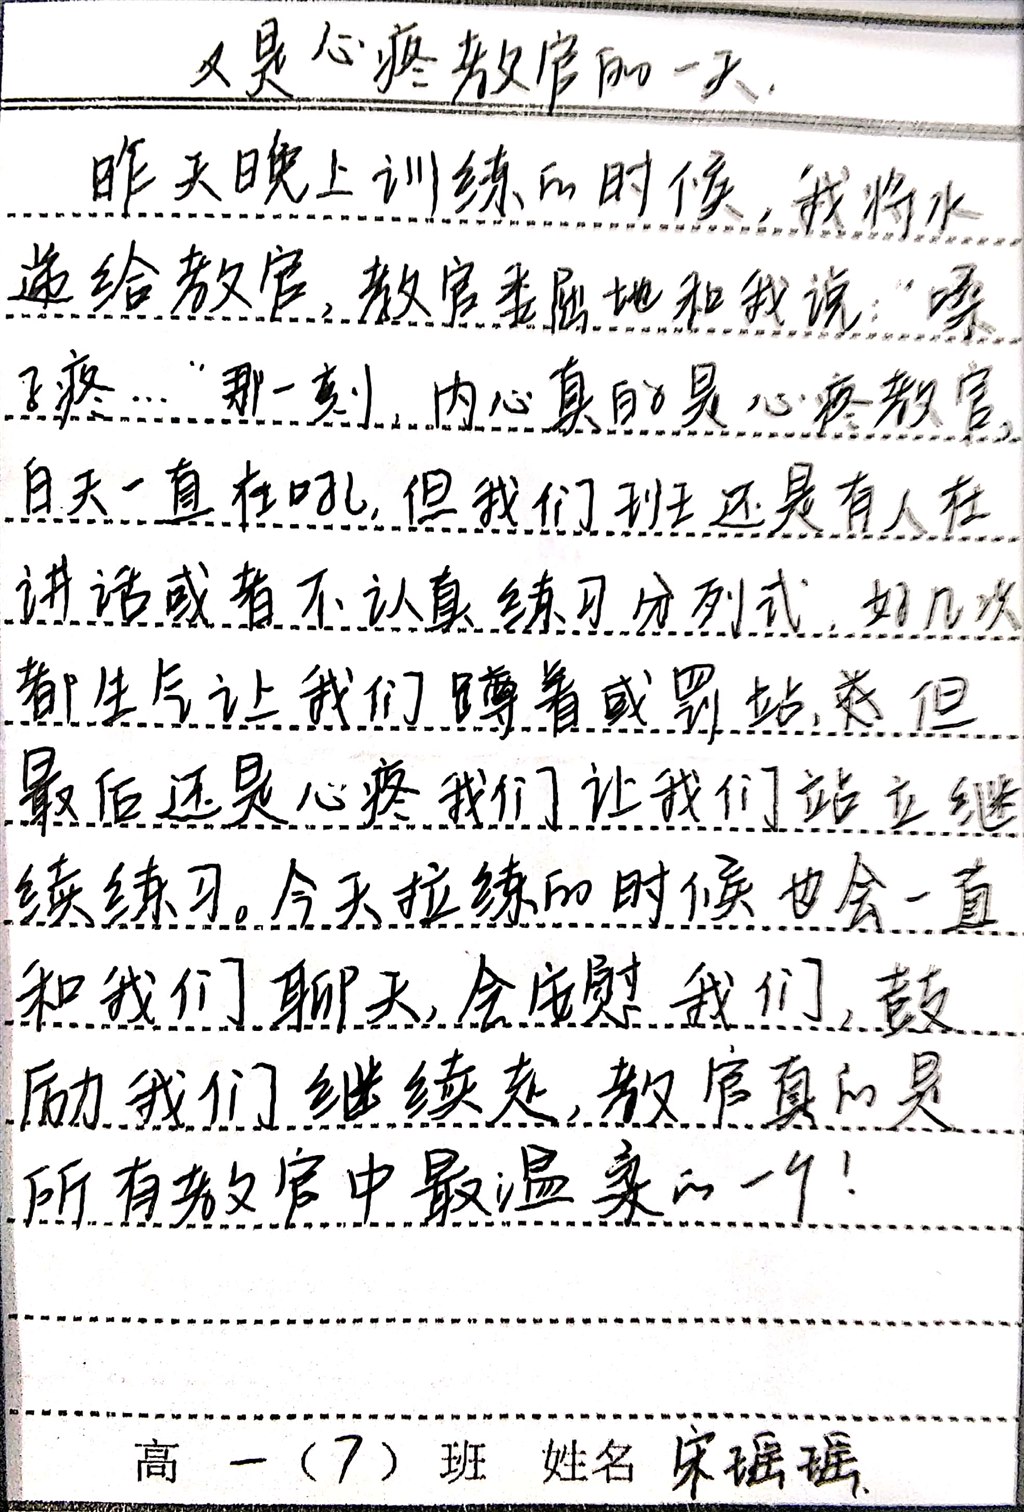 又是心疼教官的一天.
昨天晚上训练的时候,我将水
递给教官,教官委屈地和我说:“嗓
子疼…”那一刻,内心真的是心疼教官,
白天一直在吼,但我们班还是有人在
讲话或者不认真练习分列式,好几次
都生气让我们蹲着或罚站,但
最后还是心疼我们让我们站立继
续练习。今天拉练的时候也会一直
和我们聊天,会安慰我们,鼓
励我们继续走,教官真的是
所有教官中最温柔的一个!
高一(7)班 姓名 宋瑶瑶